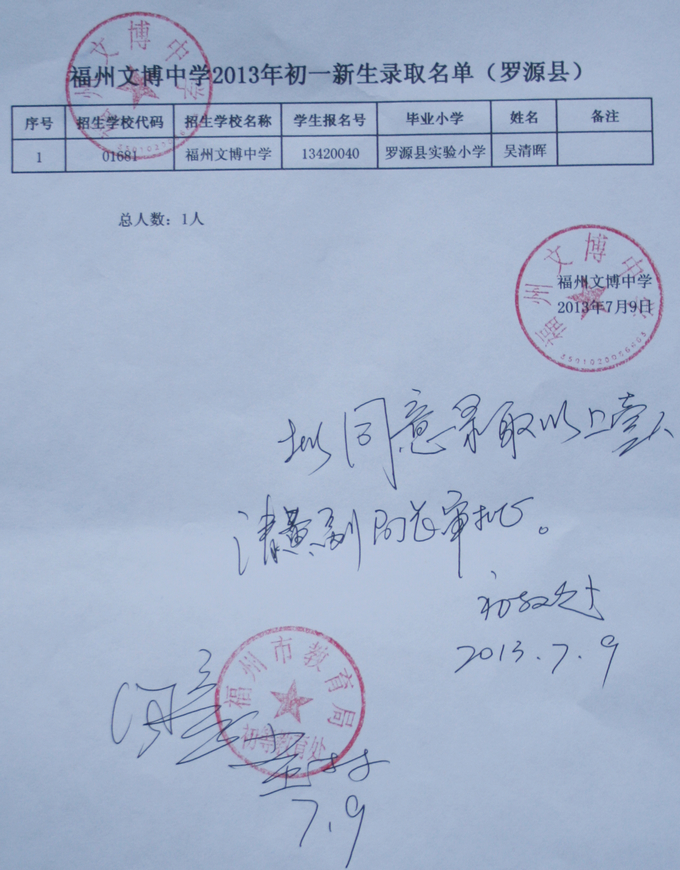 福州文博中学2013年初一新生录取名单（罗源县）
序号 招生学校代码 招生学校名称 学生报名号 毕业小学 姓名 备注
1 01681 福州文博中学 13420040 罗源县实验小学 吴清晖
总人数：1人
福州文博中学
福州文博中学
2013年7月9日
福州文博中学
3501020056403
拟同意录取以上壹人
请黄副局长审批。
初教处
2013.7.9
福州市教育局
初等教育处
7.9